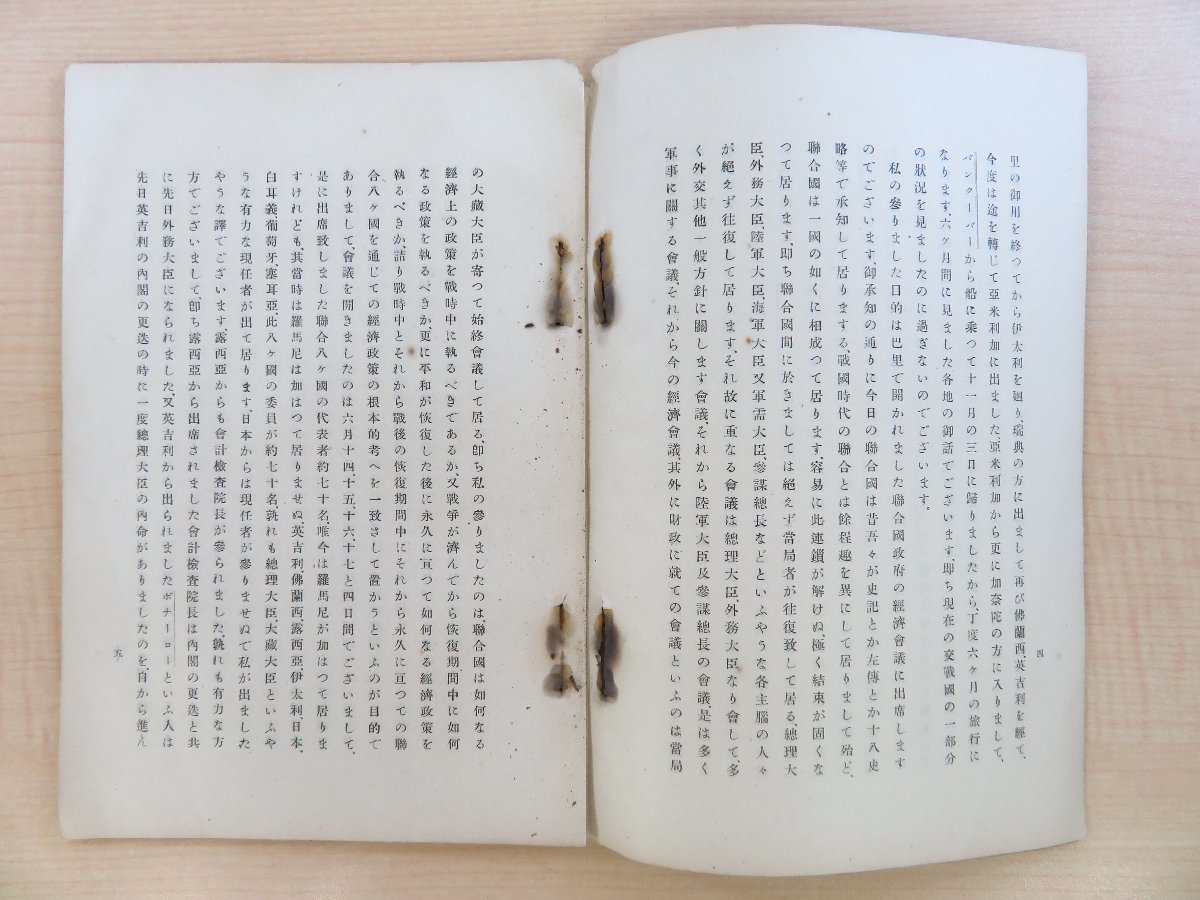 里の御用を終つてから伊太利を廻り、瑞典の方に出まして再び佛蘭西、英吉利を經て、
今度は途を轉じて亞米利加に出ました、亞米利加から更に加奈陀の方に入りまして、
バンクーバーから船に乘つて十一月の三日に歸りましたから、丁度六ヶ月の旅行に
なります、六ヶ月間に見ました各地の御話でございます、即ち現在の交戰國の一部分
の狀況を見ましたのに過ぎないのでございます。
私の參りました目的は巴里で開かれました聯合國政府の經濟會議に出席します
のでございます、御承知の通りに今日の聯合國は昔吾々が史記とか左傳とか十八史
略等で承知して居りまする戰國時代の聯合とは餘程趣を異にして居りまして殆ど、
聯合國は一國の如くに相成つて居ります、容易に此連鎖が解けぬ極く結束が固くな
つて居ります、即ち聯合國間に於きましては絶えず當局者が往復致して居る、總理大
臣、外務大臣、陸軍大臣、海軍大臣又軍需大臣、參謀總長などといふやうな各主腦の人々
が絶えず往復して居ります、それ故に重なる會議は總理大臣、外務大臣なり會して、多
く外交其他一般方針に關します會議、それから陸軍大臣及參謀總長の會議、是は多く
軍事に關する會議それから今の經濟會議、其外に財政に就ての會議といふのは當局
四
の大藏大臣が寄つて始終會議して居る、即ち私の參りましたのは、聯合國は如何なる
經濟上の政策を戰時中に執るべきであるか、又戰爭が濟んでから恢復期間中に如何
なる政策を執るべきか、更に平和が恢復した後に永久に亘つて如何なる經濟政策を
執るべきか、詰り戰時中とそれから戰後の恢復期間中にそれから永久に亘つての聯
合八ヶ國を通じての經濟政策の根本的考へを一致さして置かうといふのが目的で
ありまして、會議を開きましたのは六月十四、十五、十六、十七と四日間でございまして、
是に出席致しました聯合八ヶ國の代表者約七十名、唯今は羅馬尼が加はつて居りま
すけれども、其當時は羅馬尼は加はつて居りませぬ英吉利、佛蘭西、露西亞、伊太利日本、
白耳義葡萄牙、塞耳亞、此八ヶ國の委員が約七十名、孰れも總理大臣、大藏大臣といふや
うな有力な現任者が出て居ります、日本からは現任者が參りませぬで私が出ました
やうな譯でございます、露西亞からも會計檢査院長が參られました、孰れも有力な方
方でございまして、即ち露西亞から出席されました會計檢査院長は內閣の更迭と共
に先日外務大臣になられました、又英吉利から出られましたボナーローといふ人は
先日英吉利の內閣の更迭の時に一度總理大臣の內命がありましたのを、自から進ん
五